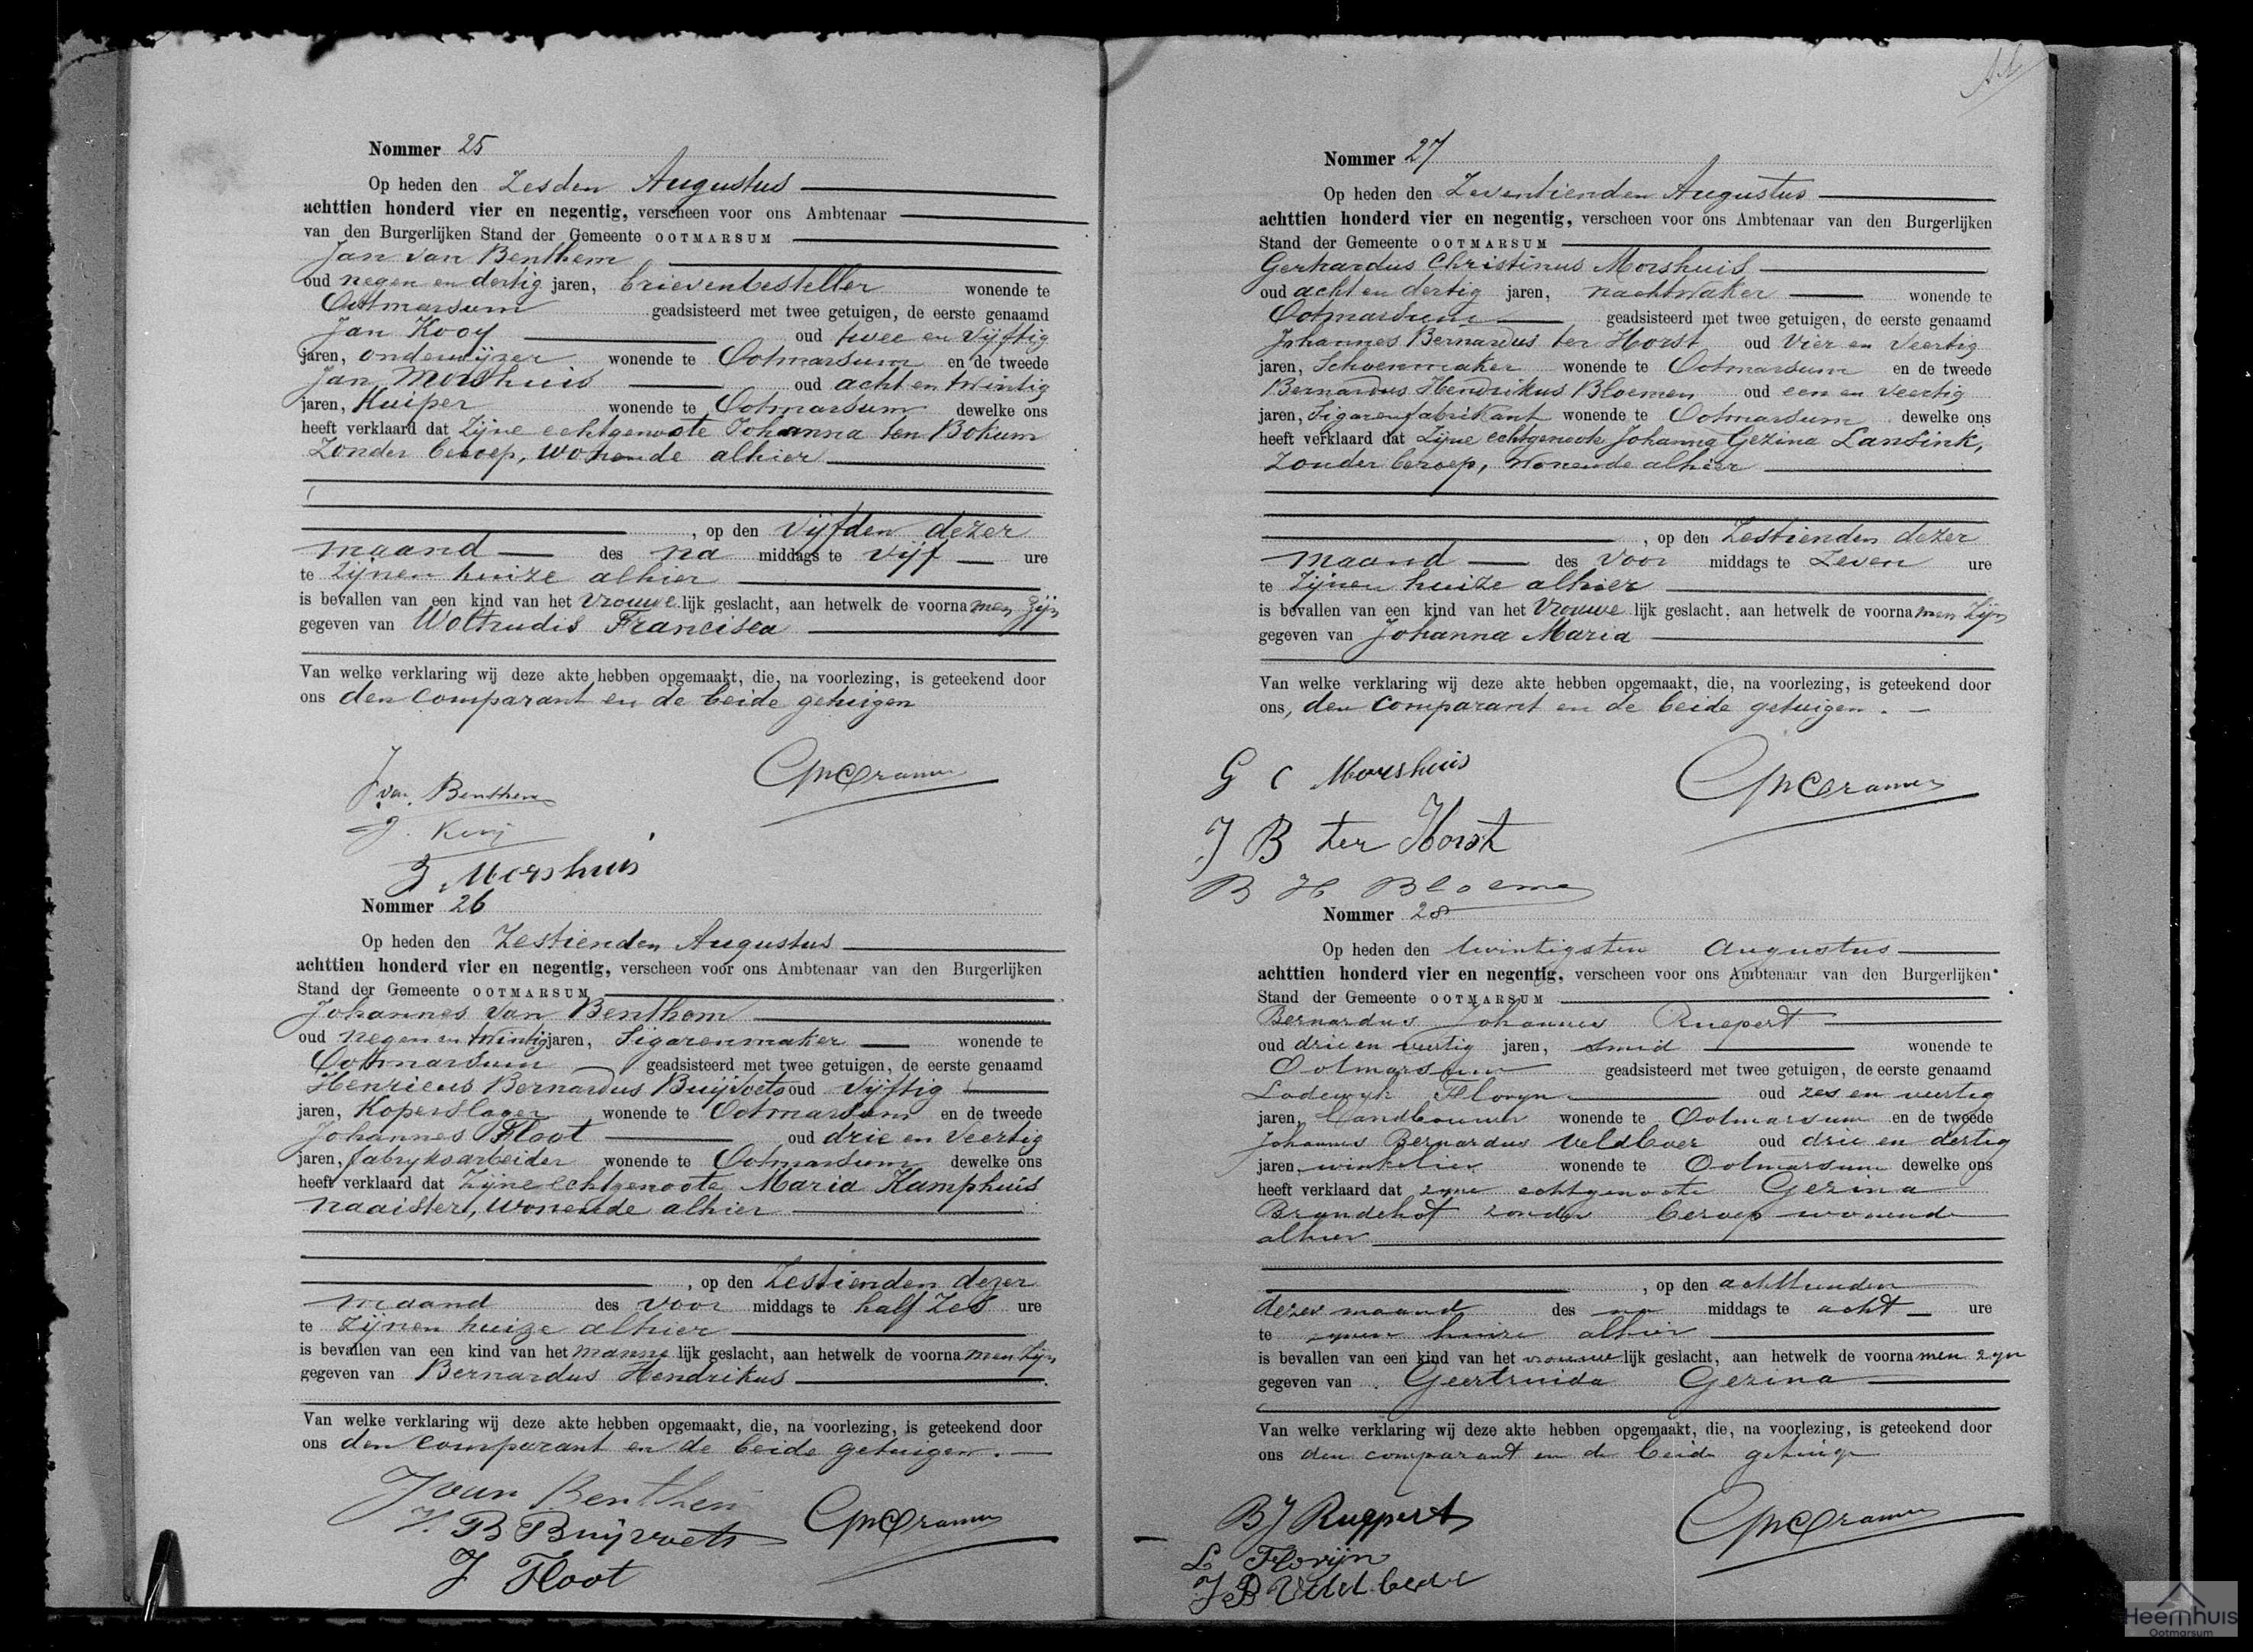 Nommer 25
Op heden den Zesden Augustus
achttien honderd vier en negentig, verscheen voor ons Ambtenaar
van den Burgerlijken Stand der Gemeente OOTMARSUM
Jan van Benthem
oud negen en dertig jaren, brievenbesteller wonende te
Ootmarsum geadsisteerd met twee getuigen, de eerste genaamd
Jan Kooy oud twee en vijftig
jaren, onderwijzer wonende te Ootmarsum en de tweede
Jan Morshuis oud acht en twintig
jaren, Kuiper wonende te Ootmarsum dewelke ons
heeft verklaard dat Zijne echtgenoote Johanna ten Bokum
Zonder beroep, wonende alhier
, op den Vijfden dezer
maand des na middags te vijf ure
te Zijnen huize alhier
is bevallen van een kind van het Vrouwe lijk geslacht, aan hetwelk de voornamen zijn
gegeven van Woltrudis Francisca
Van welke verklaring wij deze akte hebben opgemaakt, die, na voorlezing, is geteekend door
ons den comparant en de beide getuigen
J van Benthem
J. Kooij
J. Morshuis
Nommer 26
Op heden den Zestienden Augustus
achttien honderd vier en negentig, verscheen voor ons Ambtenaar van den Burgerlijken
Stand der Gemeente OOTMARSUM
Johannes van Benthem
oud negen en twintig jaren, Sigarenmaker wonende te
Ootmarsum geadsisteerd met twee getuigen, de eerste genaamd
Henricus Bernardus Buijvoets oud vijftig
jaren, Koperslager wonende te Ootmarsum en de tweede
Johannes Floot oud drie en veertig
jaren, fabryksarbeider wonende te Ootmarsum dewelke ons
heeft verklaard dat Zijne echtgenoote Maria Kamphuis
naaister, wonende alhier
, op den Zestienden dezer
maand des voor middags te half Zes ure
te Zijnen huize alhier
is bevallen van een kind van het manne lijk geslacht, aan hetwelk de voornamen Zijn
gegeven van Bernardus Hendrikus
Van welke verklaring wij deze akte hebben opgemaakt, die, na voorlezing, is geteekend door
ons den comparant en de beide getuigen.
J van Benthem
H. B Buijvoets
J Floot
Nommer 27
Op heden den Zeventienden Augustus
achttien honderd vier en negentig, verscheen voor ons Ambtenaar van den Burgerlijken
Stand der Gemeente OOTMARSUM
Gerhardus Christinus Morshuis
oud acht en dertig jaren, nachtwaker wonende te
Ootmarsum geadsisteerd met twee getuigen, de eerste genaamd
Johannes Bernardus ter Horst oud Vier en Veertig
jaren, Schoenmaker wonende te Ootmarsum en de tweede
Bernardus Hendrikus Bloemen oud een en veertig
jaren, Sigarenfabrikant wonende te Ootmarsum dewelke ons
heeft verklaard dat Zijne echtgenoote Johanna Gezina Lansink,
Zonder beroep, wonende alhier
, op den Zestienden dezer
maand des Voor middags te Zeven ure
te Zijnen huize alhier
is bevallen van een kind van het Vrouwe lijk geslacht, aan hetwelk de voornamen Zijn
gegeven van Johanna Maria
Van welke verklaring wij deze akte hebben opgemaakt, die, na voorlezing, is geteekend door
ons, den Comparant en de beide getuigen.
G C Morshuis
J B ter Horst
B H Bloemen
Nommer 28
Op heden den twintigsten Augustus
achttien honderd vier en negentig, verscheen voor ons Ambtenaar van den Burgerlijken
Stand der Gemeente OOTMARSUM
Bernardus Johannes Ruepert
oud drie en veertig jaren, smid wonende te
Ootmarsum geadsisteerd met twee getuigen, de eerste genaamd
Lodewyk Floryn oud zes en veertig
jaren, landbouwer wonende te Ootmarsum en de tweede
Johannes Bernardus Veldboer oud drie en dertig
jaren, winkelier wonende te Ootmarsum dewelke ons
heeft verklaard dat zyne echtgenoote Gezina
Brandehof zonder beroep wonende
alhier
, op den achttienden
dezer maand des na middags te acht ure
te zynen huize alhier
is bevallen van een kind van het vrouwe lijk geslacht, aan hetwelk de voornamen zyn
gegeven van Geertruida Gezina
Van welke verklaring wij deze akte hebben opgemaakt, die, na voorlezing, is geteekend door
ons den comparant en de beide getuige
B J Rueppert
L Florijn
J B Veldboer
Heemhuis
Ootmarsum